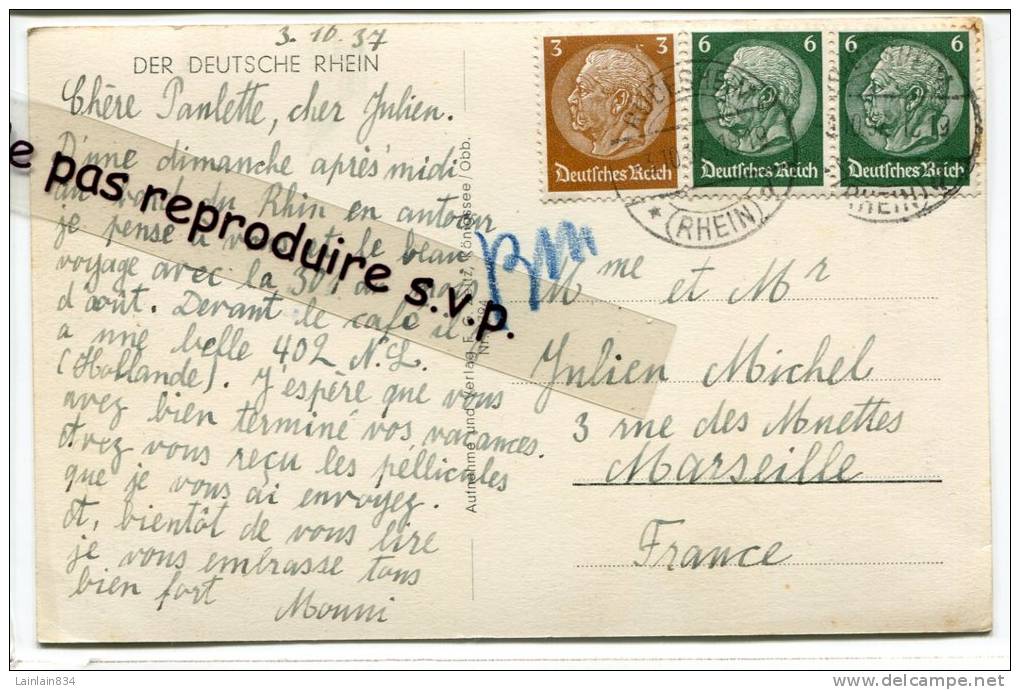 3.10.37
DER DEUTSCHE RHEIN
Chère Paulette, cher Julien.
D'une dimanche après'midi
au bord du Rhin en autocar
je pense à vous et le beau
voyage avec la 301 au mois
d'août. Devant le café il y
a une belle 402 N.L.
(Hollande). J'espère que vous
avez bien terminé vos vacances.
Avez vous reçu les péllicules
que je vous ai envoyez.
A, bientôt de vous lire
je vous embrasse tous
bien fort
Mouni
Aufnahme und Verlag F. G. Zeitz, Königssee/Obb.
Nr.
3 3
Deutsches Reich
6 6
Deutsches Reich
6 6
Deutsches Reich
(RHEIN)
(RHEIN)
Mme et Mr
Julien Michel
3 rue des Muettes
Marseille
France
e pas reproduire s.v.p.
Lainlain834
delcampe.net